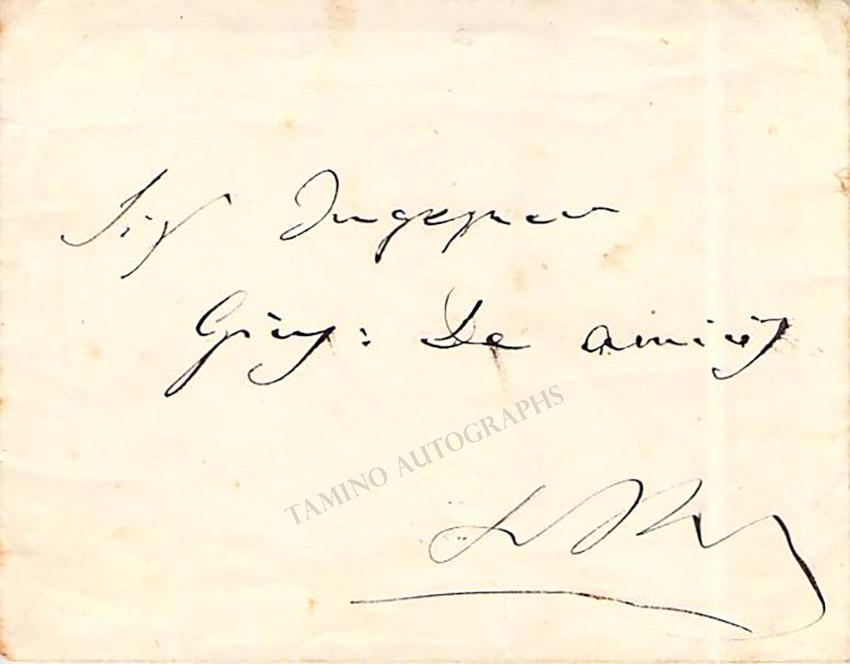 Sig Ingegnere
Giu: De Amicis
TAMINO AUTOGRAPHS